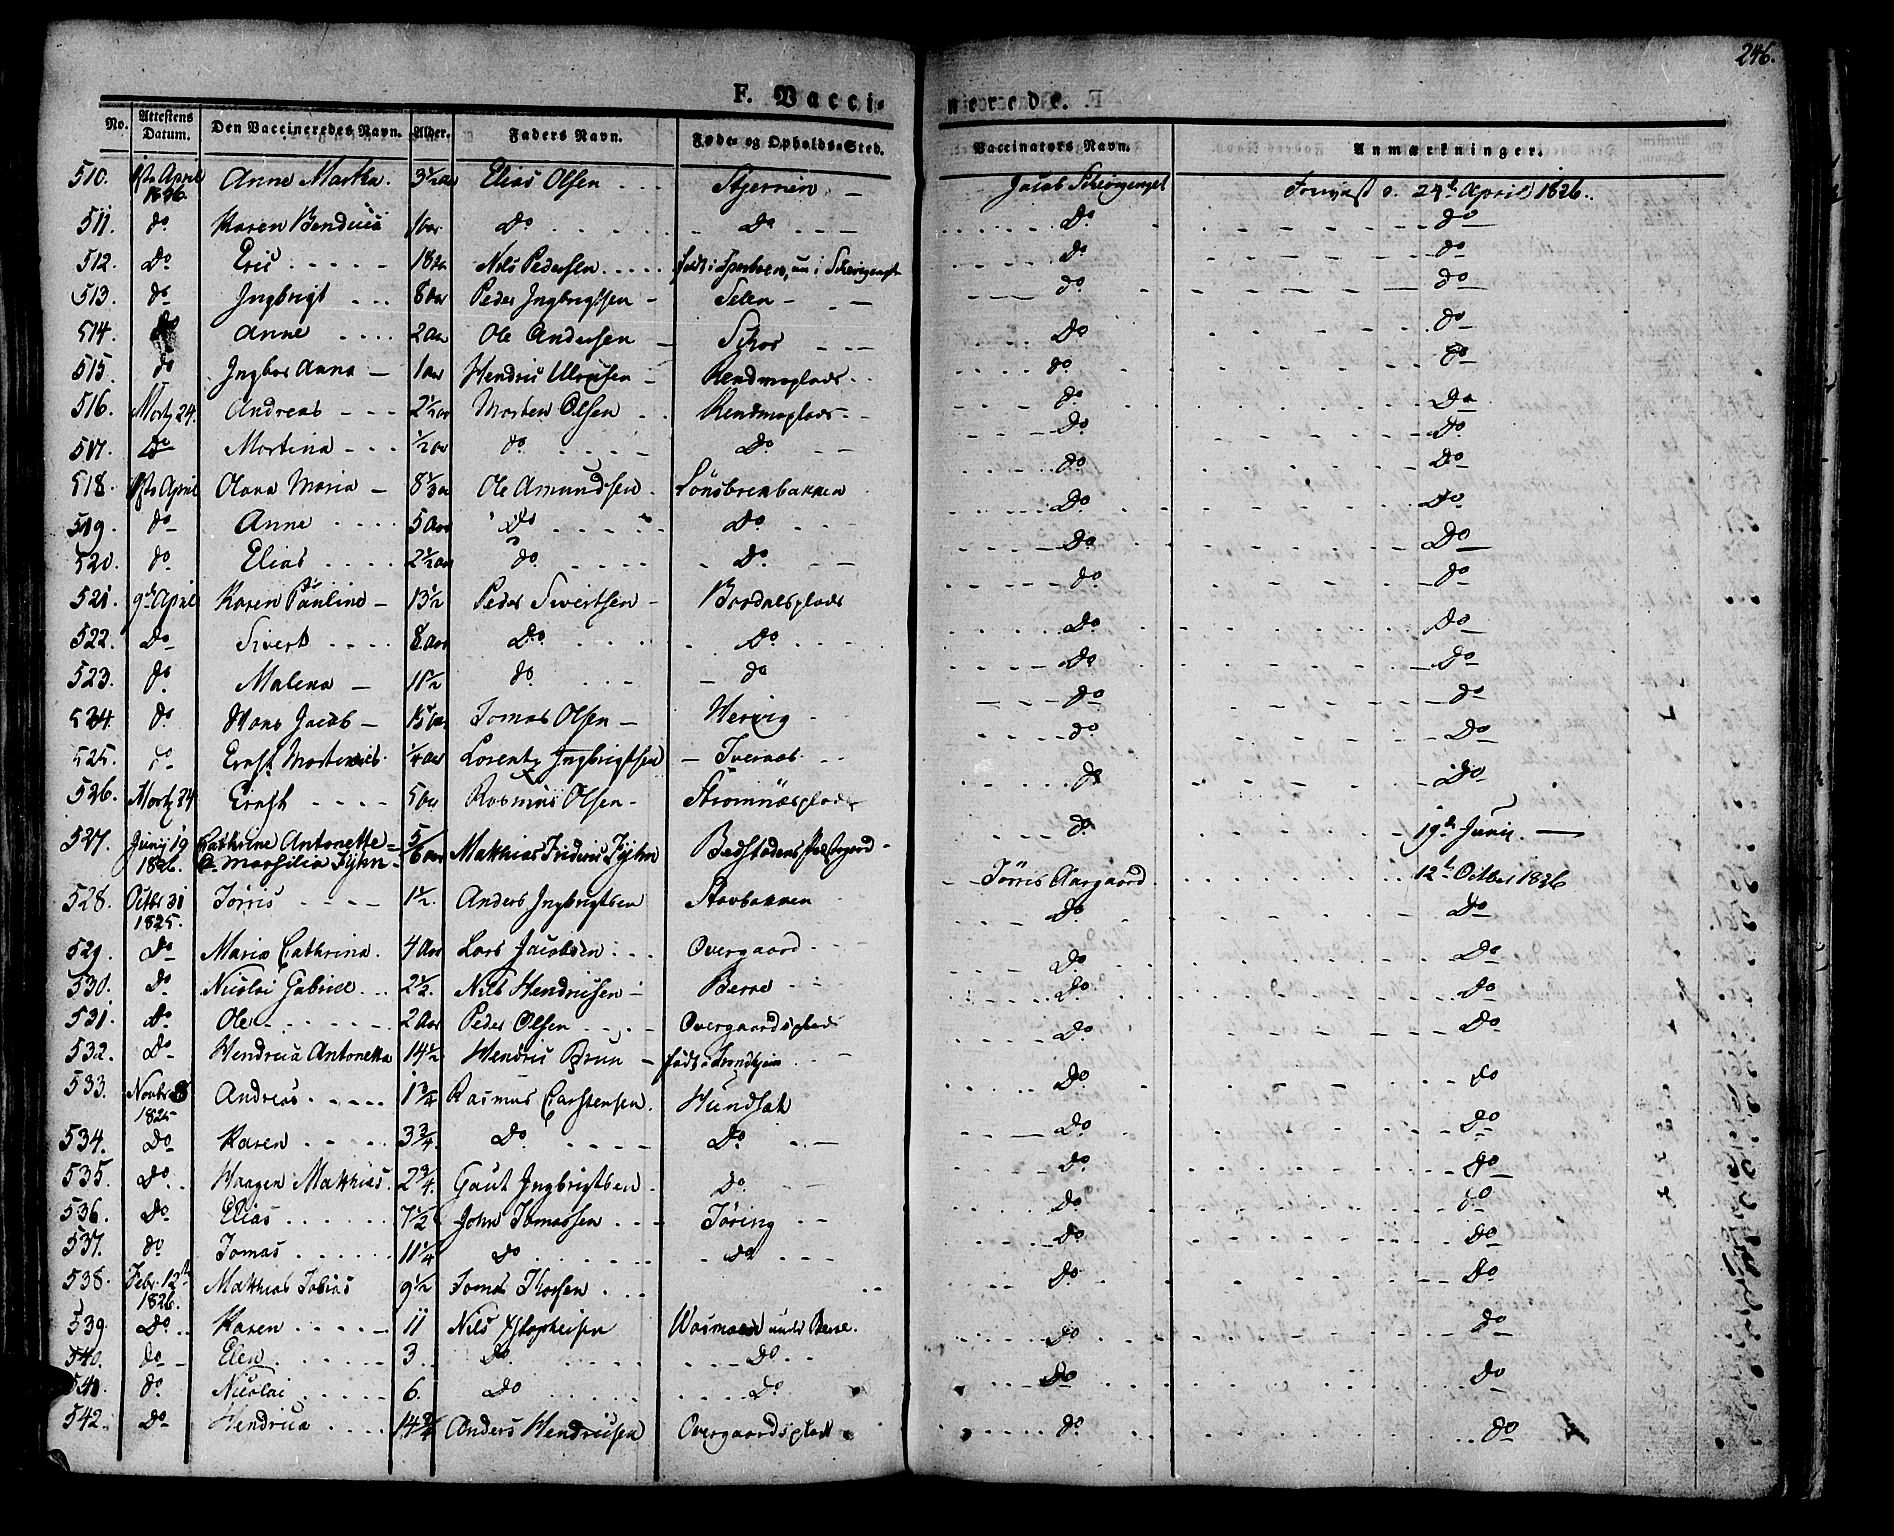 246.
F. Vaccinerede.
No. Attestens Datum. Den Vaccineredes Navn. Alder. Faders Navn. Føde- og Opholds-Sted. Vaccinators Navn. Anmærkninger.
510. April 1826 Anne Martha. 3½ Elias Olsen Stjernin Jacob 24de April 1826.
511. do Karen 1 aar Do Do Do do
512. Do Eric 18 Nils Pedersen født i Do do
513. do Ingbrigt 8 aar Peder Ingbrigtsen Selen do do
514. do Anne 2 aar Ole Andersen Do do
515. do Ingbor Anna 1 aar Hendric Ulricsen Rendmoplads do do
516. Martz 24. Andreas 2½ Morten Olsen Rendmoplads do Do
517. Do Martina ½ do Do Do Do
518. April Olava Maria 8⅓ Ole Amundsen do Do
519. do Anne 5 Aar Do Do Do Do
520. do Elias 2½ do Do Do Do
521. 9de April Karen Pauline 13½ Peder Sivertsen Bordalsplads do do
522. Do Sivert 8 aar Do Do Do Do
523. do Malena 11½ do do Do do
524. do Hans Jacob Tomas Olsen Hervig do do
525. do Ernst ¼ aar Lorentz Ingbrigtsen do Do
526. Martz 24 Ernst 5 Rasmus Olsen Strømnæsplads do Do
527. Junij 19 1826. Cathrine Antonette Marsilia 5/6 aar Mathias Frideric do 19de Junij.
528. Octbr 31 1825. Jørris 1½. Anders Ingbrigtsen Stavbakken Jørris Aargaard 12te October 1826
529. Do Maria Cathrina. 4 Aar Lars Jacobsen Overgaard Do Do
530. Do Nicolai Gabriel 2½. Nils Hendricsen Berre Do Do
531. Do Ole 2 Aar Peder Olsen Overgaardsplads Do Do
532. Do Hendrica Antonetta 14½ Hendric Brun født i Trondhjem Do Do
533. Novbr 8 1825 Andreas 1¾ Rasmus Carstensen. Do do
534. Do Karen 3¾ Do Do Do Do
535. Do Haagen Mathias. 2¾. Gaut Ingbrigtsen Do Do do
536. Do Elias 7½ John Tomassen Tøring Do do
537. do Tomas 11¼ Do do Do Do
538. Febr. 12te 1826. Mathias Tobias 9½ Tomas Do Do
539 Do Karen 11 Nils under Berre. Do Do
540. do Elen 3 Do Do
541. do Nicolai 6. Do Do Do Do
542. Do Hendrica 14¾ Anders Hendricsen Overgaardsplads do do